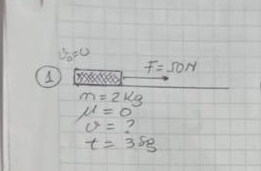 v₀=0
① F=50N
m=2kg
μ=0
v=?
t=3